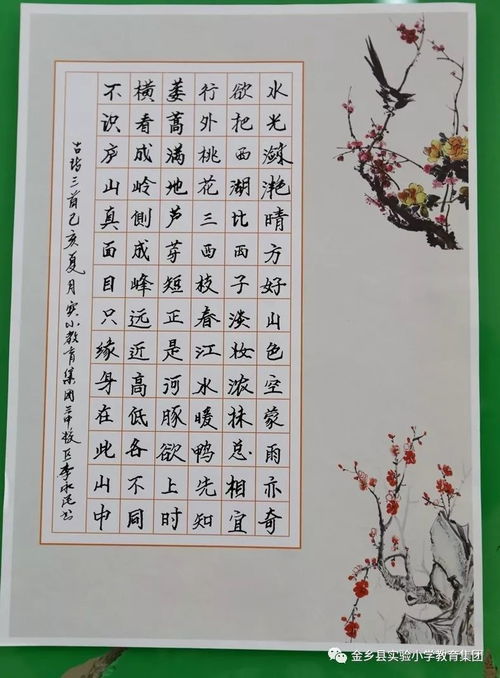 水光潋滟晴方好山色空蒙雨亦奇
欲把西湖比西子淡妆浓抹总相宜
行外桃花三西枝春江水暖鸭先知
蒌蒿满地芦芽短正是河豚欲上时
横看成岭側成峰远近高低各不同
不识庐山真面目只缘身在此山中
古诗三首己亥夏月实小教育集团中校区李书
金乡县实验小学教育集团